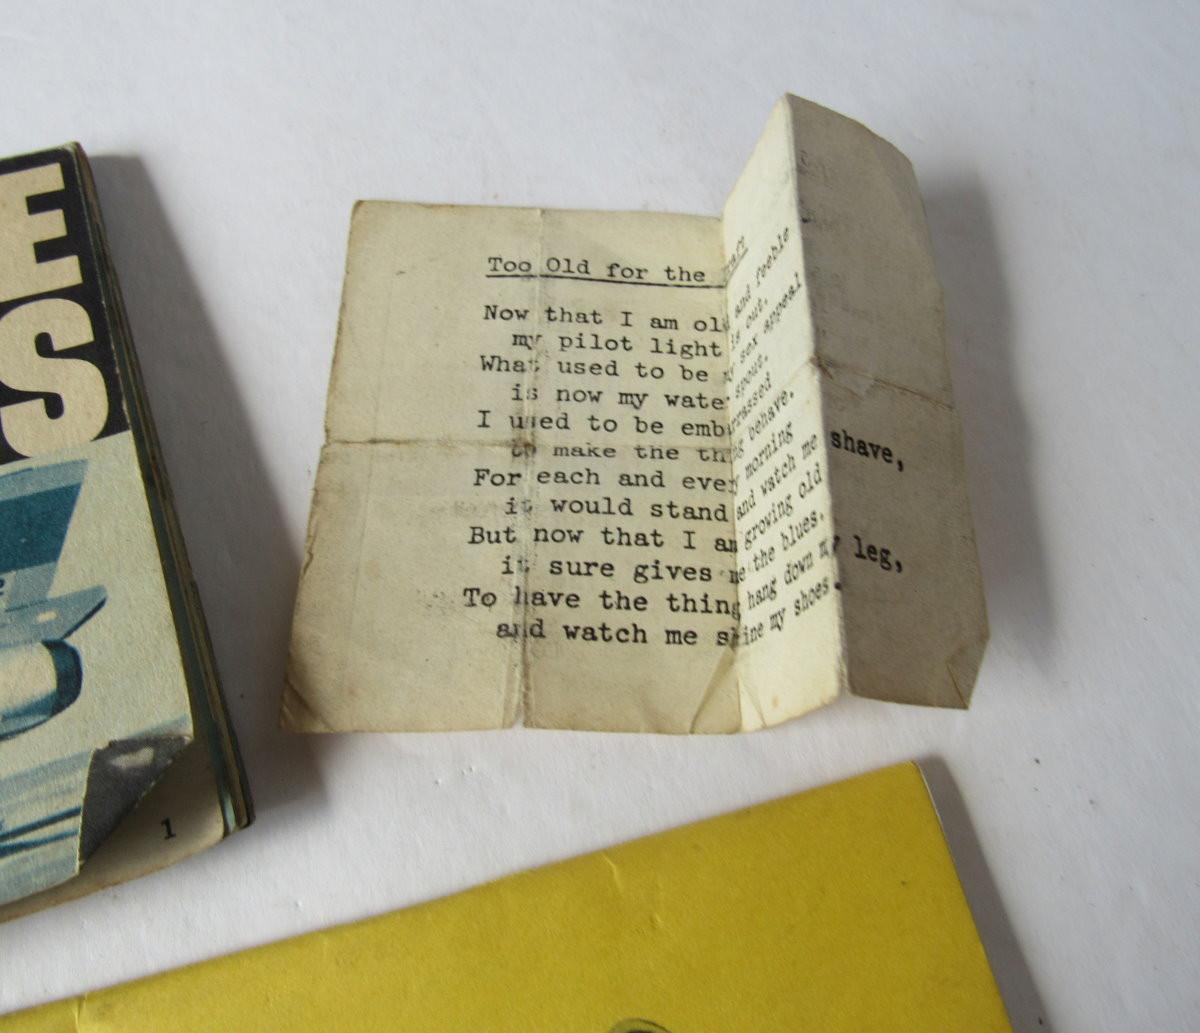 E
S
1
Too Old for the Draft
Now that I am old and feeble
my pilot light is out.
What used to be my sex appeal
is now my water spout.
I used to be embarrassed
to make the thing behave.
For each and every morning
it would stand and watch me shave,
But now that I am growing old
it sure gives me the blues.
To have the thing hang down my leg,
and watch me shine my shoes.